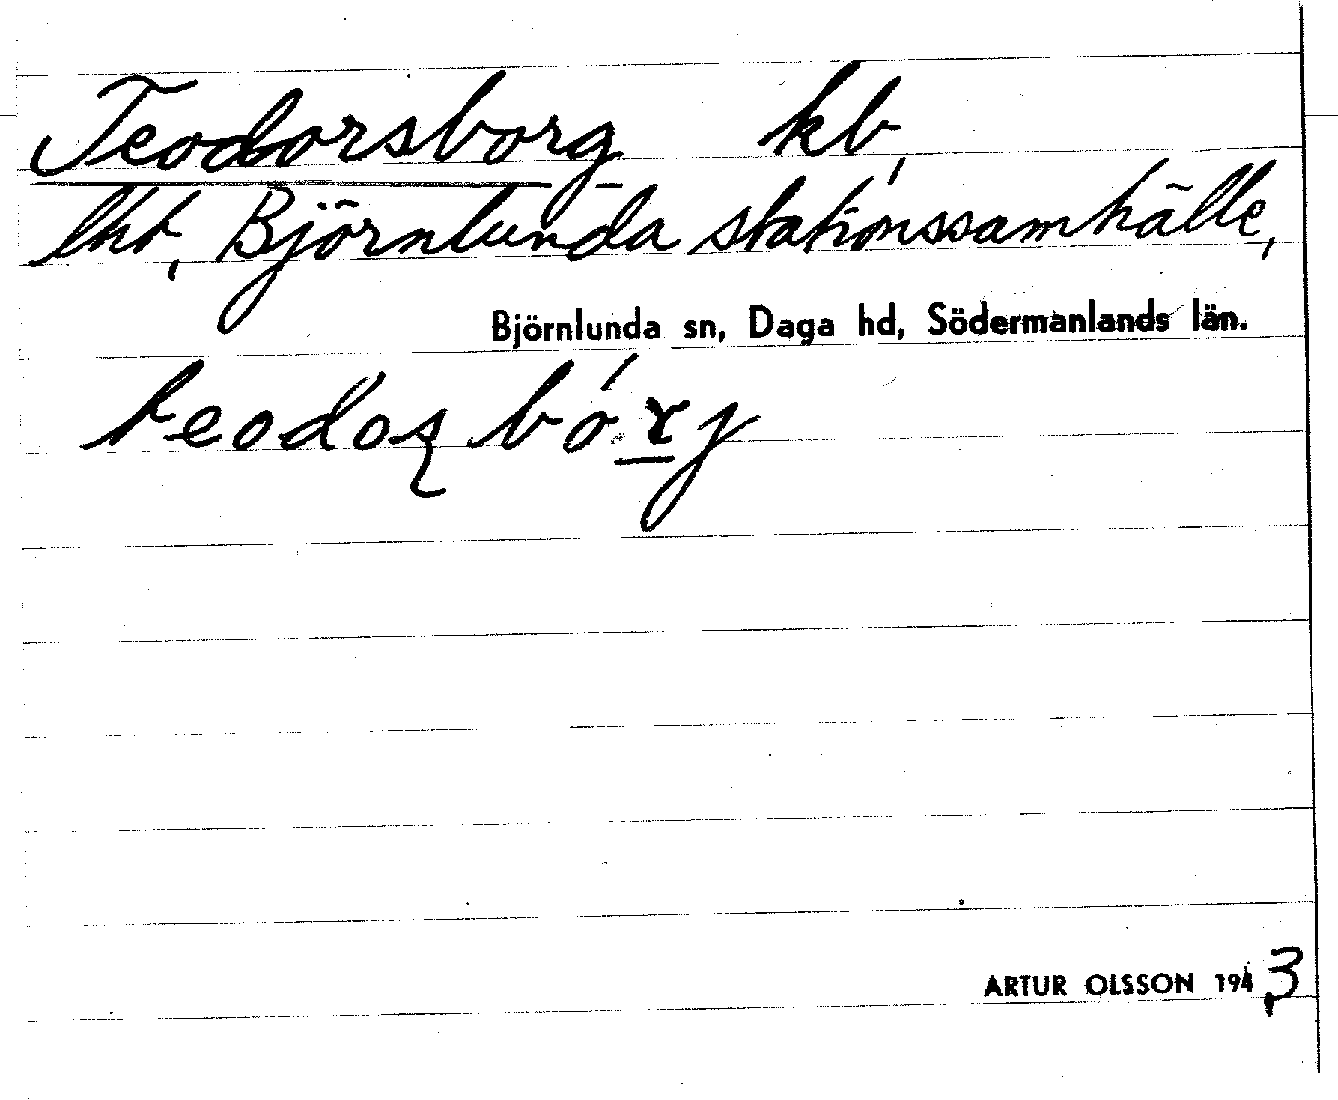 Teodorsborg kb,
lht, Björnlunda stationssamhälle,
Björnlunda sn, Daga hd, Södermanlands län.
teodoʂ bó rj
ARTUR OLSSON 1943